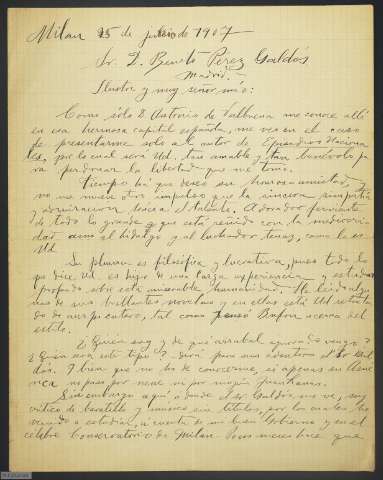 Milan 15 de julio de 1907
Sr. D. Benito Pérez Galdós
Madrid.
Ilustre y muy señor mío:
Como sólo D. Antonio de Valbuena me conoce allí
en esa hermosa capital española, me veo en el caso
de presentarme solo al autor de Episodios Naciona
les, por lo cual será Ud. tan amable y tan benévolo pa
ra perdonar la libertad que me tomo.
Tiempo ha que deseo su honrosa amistad, y
no me mueve otro impulso que la sincera simpatía
y admiración hacia el talento. Adorador ferviente
de todo lo grande y que está reñido con la mediocri
dad amo al hidalgo y al luchador tenaz, como lo es
Ud.
Su pluma es filosófica y lucrativa, pues todo lo
que dice Ud. es hijo de una larga experiencia y estudio
profundo sobre esta miserable humanidad. He leído algu
nas de sus brillantes novelas y en ellas está Ud. retrata
do de cuerpo entero, tal como pensó Buffon acerca del
estilo.
¿Quién soy, y de qué arrabal ignorado vengo?
¿Quién será este tipo? dirá para sus adentros el Sr. Gal
dós. Y bien que no ha de conocerme, si apenas en
ni para por
Sin embargo aquí a donde el Sr. Galdós me ve, soy
crítico de bastilla y músico sin títulos, por los cuales he
venido a estudiar, a cuenta de mi buen Gobierno y en el
célebre Conservatorio de Milan. Unos meses hace que